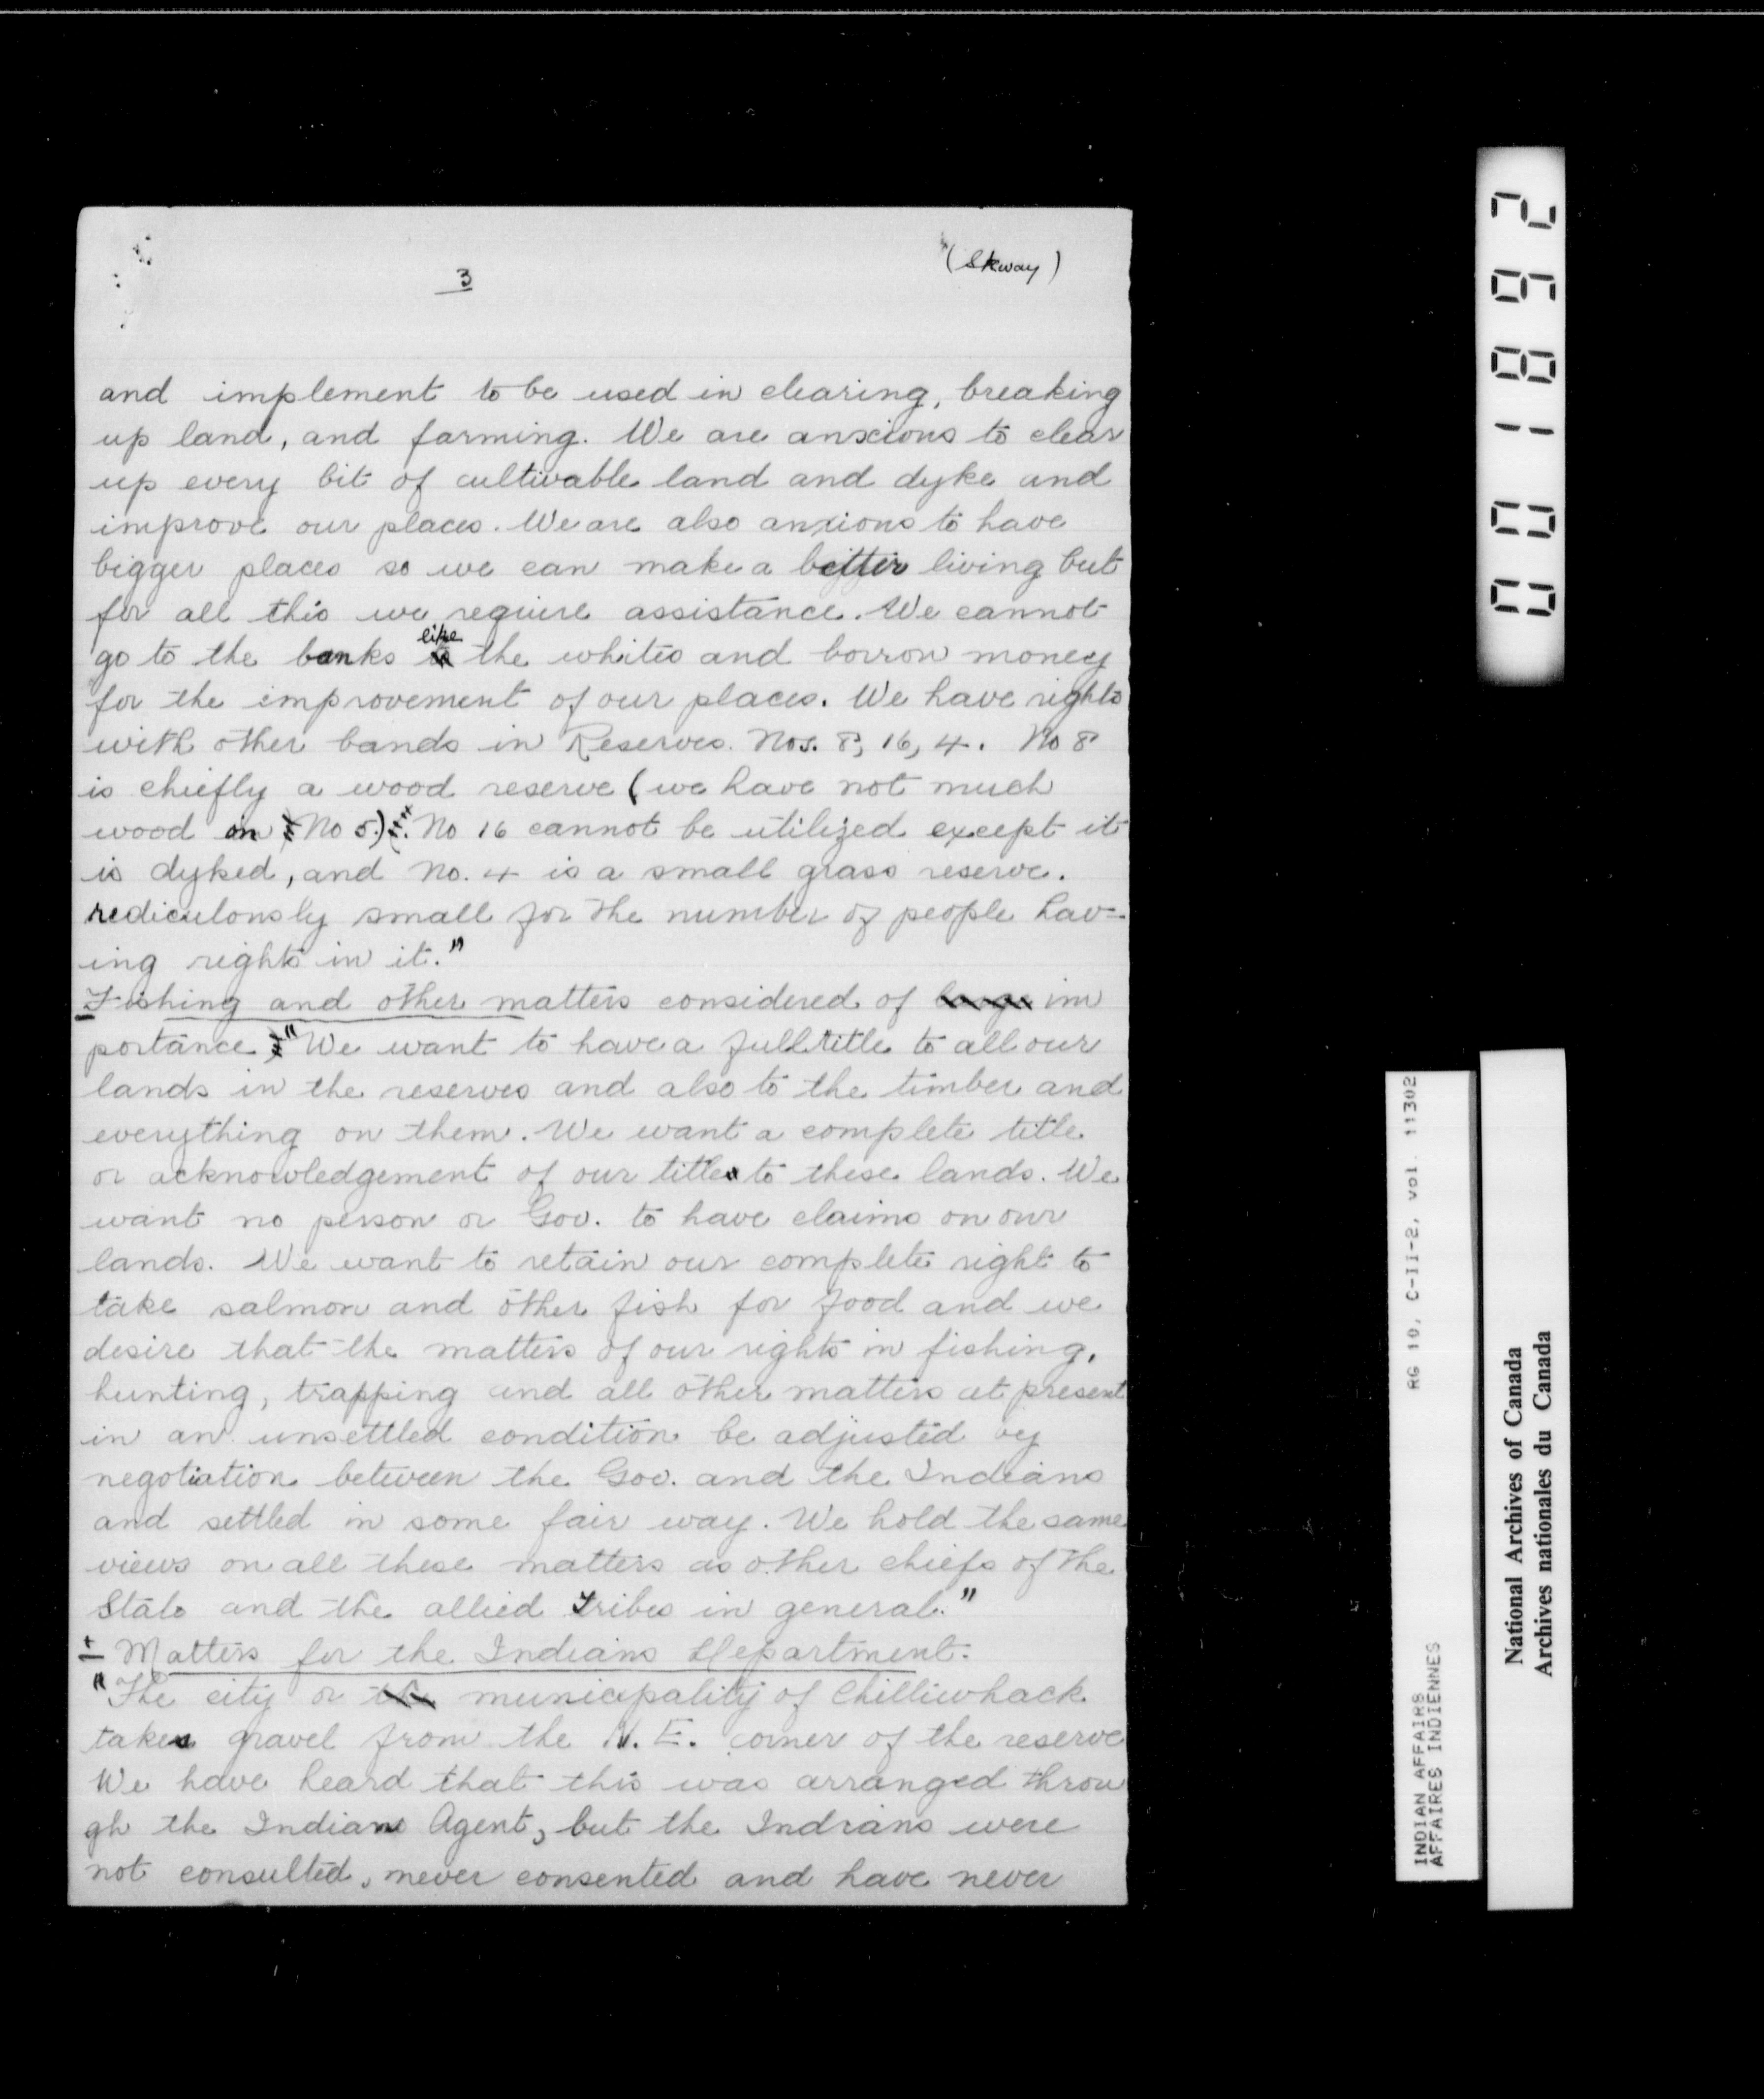 3
(Skway)
and implement to be used in clearing, breaking
up land, and farming. We are anxious to clear
up every bit of cultivable land and dyke and
improve our places. We are also anxious to have
bigger places so we can make a better living but
for all this we require assistance. We cannot
go to the banks like the whites and borrow money
for the improvement of our places. We have rights
with other bands in Reserves. Nos. 8, 16, 4. No 8
is chiefly a wood reserve (we have not much
wood on No 5.) No 16 cannot be utilized except it
is dyked, and No. 4 is a small grass reserve.
rediculously small for the number of people hav=
ing rights in it."
Fishing and other matters considered of im
portance "We want to have a full title to all our
lands in the reserves and also to the timber and
everything on them. We want a complete title
or acknowledgement of our title to these lands. We
want no person or Gov. to have claims on our
lands. We want to retain our complete right to
take salmon and other fish for food and we
desire that the matters of our rights in fishing,
hunting, trapping and all other matters at present
in an unsettled condition be adjusted by
negotiation between the Gov. and the Indians
and settled in some fair way. We hold the same
views on all these matters as other chiefs of the
Stalo and the allied Tribes in general."
Matters for the Indians Department.
"The city or municipality of Chilliwhack
takes gravel from the N. E. corner of the reserve
We have heard that this was arranged throu
gh the Indian Agent, but the Indians were
not consulted, never consented and have never
001892
RG 10, C-II-2, vol. 11302
INDIAN AFFAIRS
AFFAIRES INDIENNES
National Archives of Canada
Archives nationales du Canada